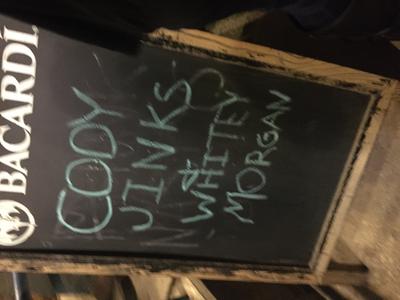 BACARDÍ
CODY
JINKS
&
WHITEY
MORGAN